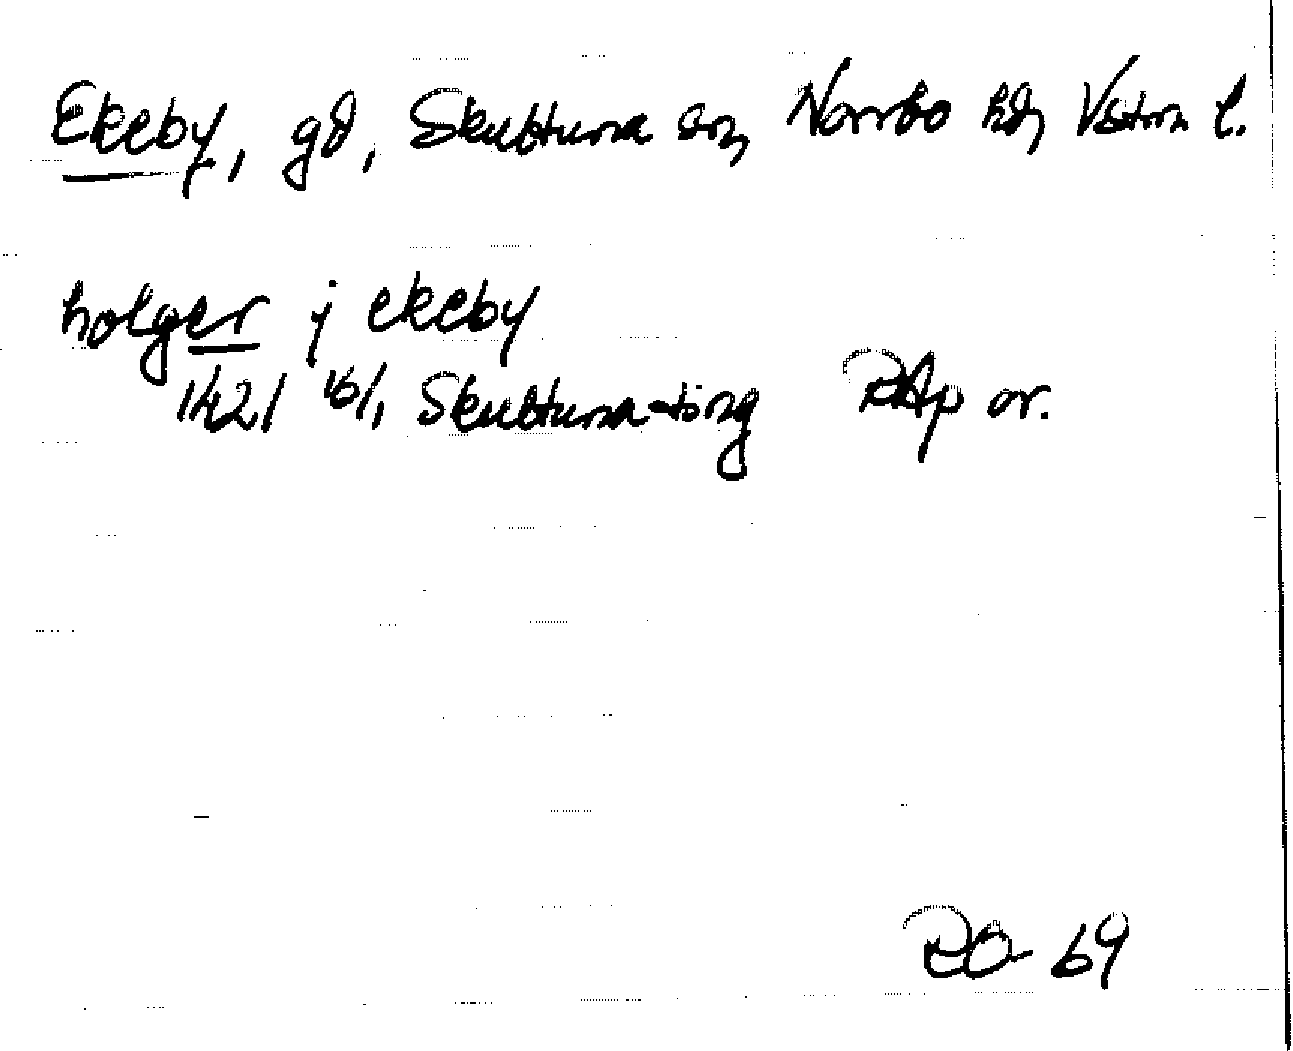 Ekeby, gd, Skultuna sn, Norrbo hd, Västm l.
holger j ekeby
1421 16/1 Skultuna-ting RAp or.
RO- 69